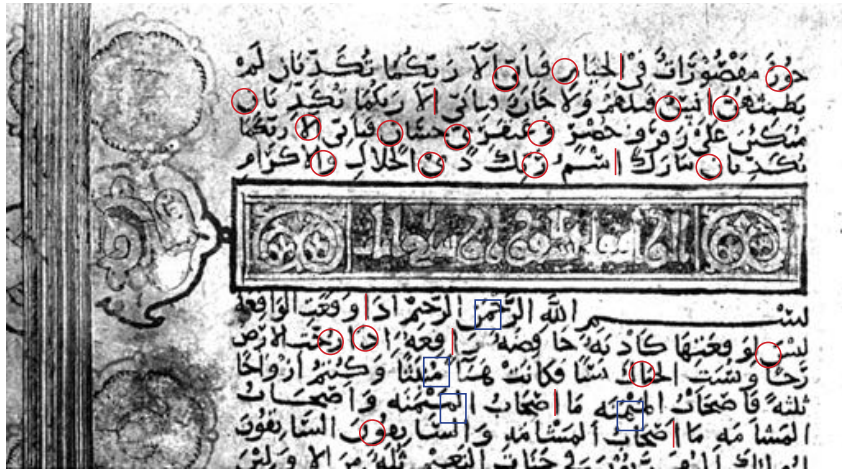 حُورٌ مَقْصُورَاتٌ فِي الخِيَامِ فَبِأَيِّ آلَاءِ رَبِّكُمَا تُكَذِّبَانِ لَمْ
يَطْمِثْهُنَّ إِنْسٌ قَبْلَهُمْ وَلَا جَانٌّ فَبِأَيِّ آلَاءِ رَبِّكُمَا تُكَذِّبَانِ
مُتَّكِئِينَ عَلَى رَفْرَفٍ خُضْرٍ وَعَبْقَرِيٍّ حِسَانٍ فَبِأَيِّ آلَاءِ رَبِّكُمَا
تُكَذِّبَانِ تَبَارَكَ اسْمُ رَبِّكَ ذِي الجَلَالِ وَالإِكْرَامِ
بسم الله الرَّحْمٰنِ الرَّحِيمِ إِذَا وَقَعَتِ الوَاقِعَةُ
لَيْسَ لِوَقْعَتِهَا كَاذِبَةٌ خَافِضَةٌ رَافِعَةٌ إِذَا رُجَّتِ الأَرْضُ
رَجًّا وَبُسَّتِ الجِبَالُ بَسًّا فَكَانَتْ هَبَاءً مُنْبَثًّا وَكُنْتُمْ أَزْوَاجًا
ثَلٰثَةً فَأَصْحَابُ المَيْمَنَةِ مَا أَصْحَابُ المَيْمَنَةِ وَأَصْحَابُ
المَشْأَمَةِ مَا أَصْحَابُ المَشْأَمَةِ وَالسَّابِقُونَ السَّابِقُونَ
فِي جَنَّاتِ النَّعِيمِ ثُلَّةٌ مِنَ